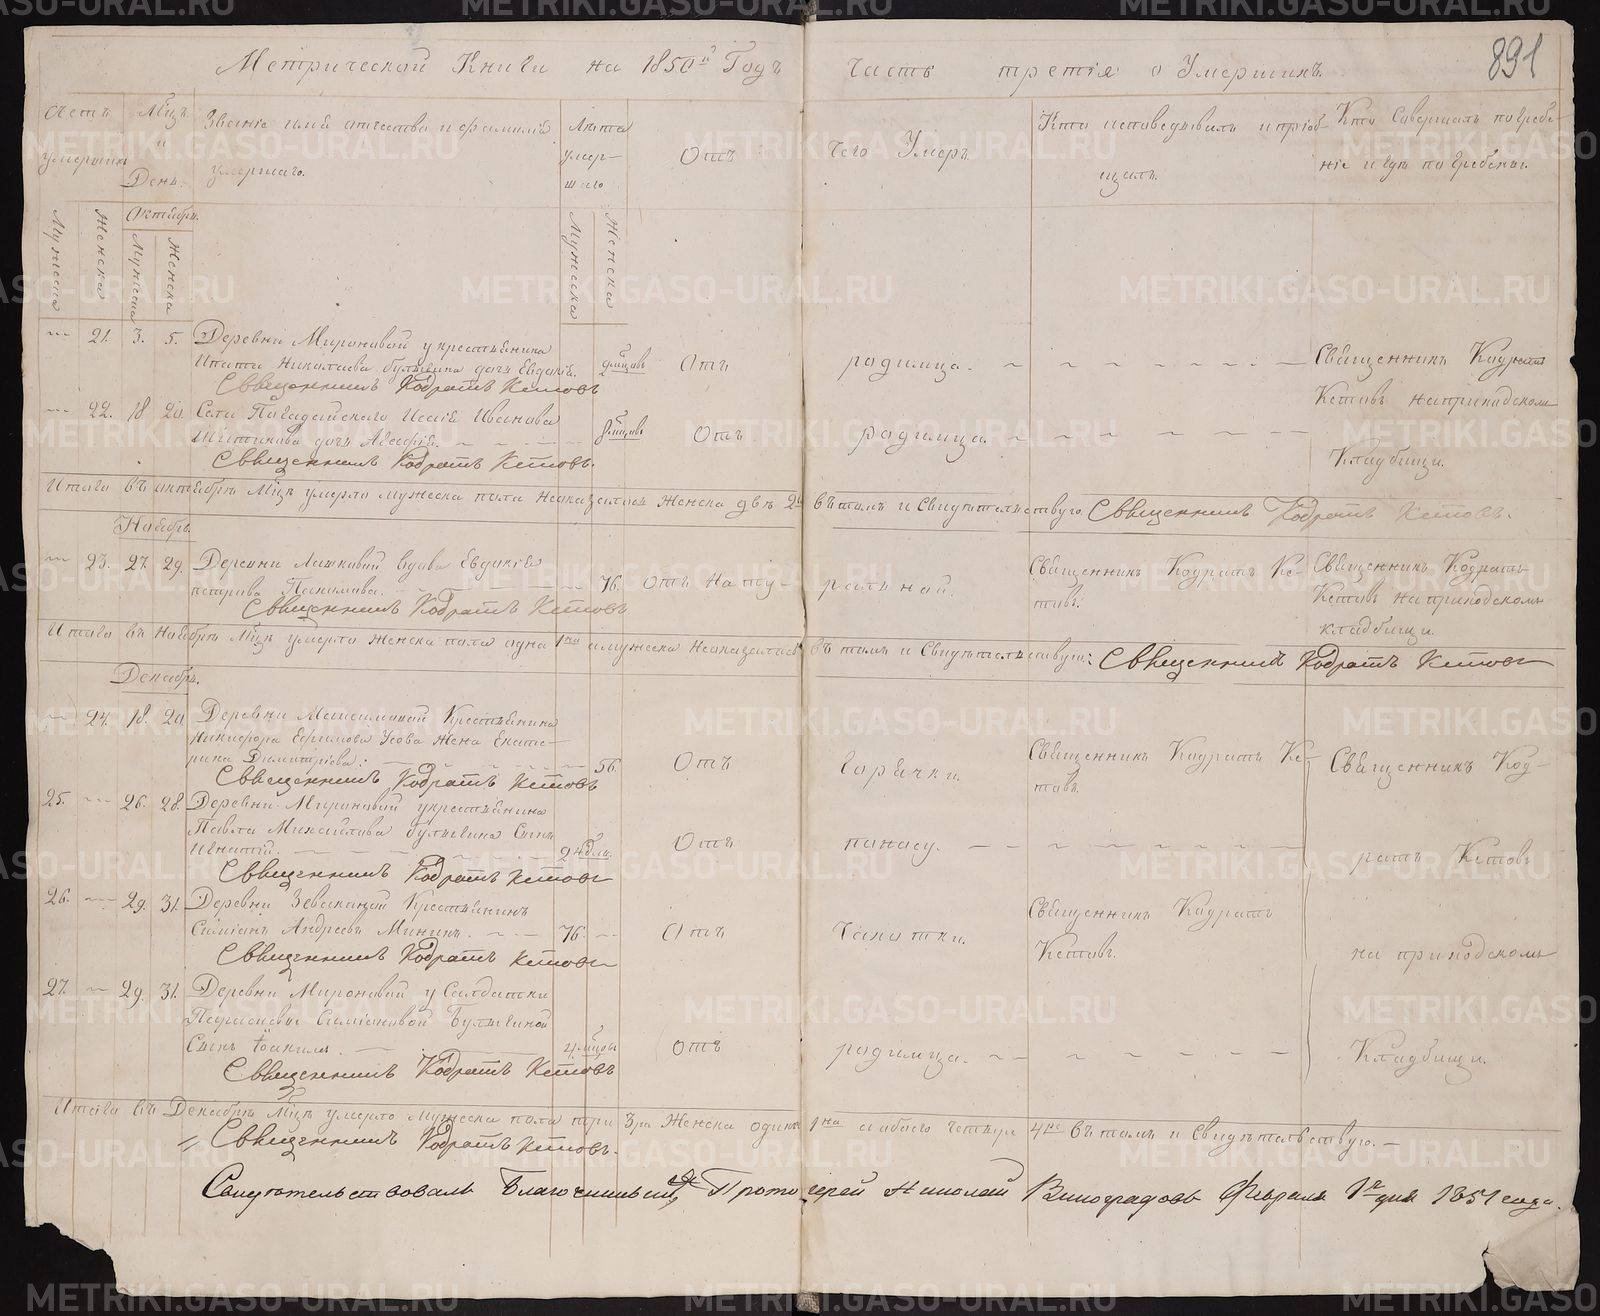 Метрической Книги на 1850й Годъ Часть третія о Умершихъ.
891
Счетъ умершихъ
Мѣцъ и День.
Званіе имя отчество и фамилія умершаго.
Лѣта умер-
шаго
Отъ
чего Умеръ.
Кто исповедывалъ и пріоб-
щалъ.
Кто Совершалъ погребе-
ніе и гдѣ погребены.
Мужеска
Женска
Октябрь.
Мужеска
Женска
Мужеска
Женска
21. 3. 5. Деревни Мироновой у крестьянина
Ипата Николаева дочь Евдокія. Отъ родимца.
Священникъ Кодратъ Кетовъ
Священникъ Кодратъ
Кетовъ на приходскомъ
Кладбищи.
22. 18 20. Села Исаія Иванова
дочь Агафія. Отъ родимца
Священникъ Кодратъ Кетовъ.
Итого въ октябрѣ Мцѣ умерло мужеска пола неоказалось Женска двѣ 2 въ томъ и Свидѣтельствую. Священникъ Кодратъ Кетовъ.
Ноябрь.
23. 27. 29. Деревни вдова Евдокія
петрова. 76. отъ нату- ральной.
Священникъ Кодратъ Кетовъ
Священникъ Кодратъ Ке-
товъ.
Священникъ Кодратъ
Кетовъ на приходскомъ
кладбищи.
Итого въ ноябрѣ Мцѣ умерло женска пола одна 1на а мужеска неоказалось въ томъ и Свидѣтельствую: Священникъ Кодратъ Кетовъ
Декабрь.
24. 18. 20. Деревни Крестьянина
Никифора Ефимова Усова Жена Екате-
рина Димитріева. 56. Отъ горячки.
Священникъ Кодратъ Кетовъ
Священникъ Кодратъ Ке-
товъ.
Священникъ Код-
ратъ Кетовъ
на приходскомъ
Кладбищи.
25. 26. 28. Деревни Мироновой у крестьянина
Павла Михайлова Сынъ
Игнатій. Отъ поносу.
Священникъ Кодратъ Кетовъ
26. 29. 31. Деревни Крестьянинъ
Симіонъ Андреевъ Мининъ. 76. Отъ Чахотки.
Священникъ Кодратъ Кетовъ
Священникъ Кодратъ
Кетовъ.
27. 29. 31. Деревни Мироновой у Салдатки
Симіоновой
Сынъ Іоакимъ. Отъ родимца.
Священникъ Кодратъ Кетовъ
Итого въ Декабрѣ Мцѣ умерло мужеска пола три 3ри Женска 1на а обоего четыре 4ре въ томъ и Свидѣтельствую.
Священникъ Кодратъ Кетовъ.
Свидѣтельствовалъ Благочинный Протоіерей Николай Виноградовъ Февраля 1 дня 1851 года.
METRIKI.GASO-URAL.RU